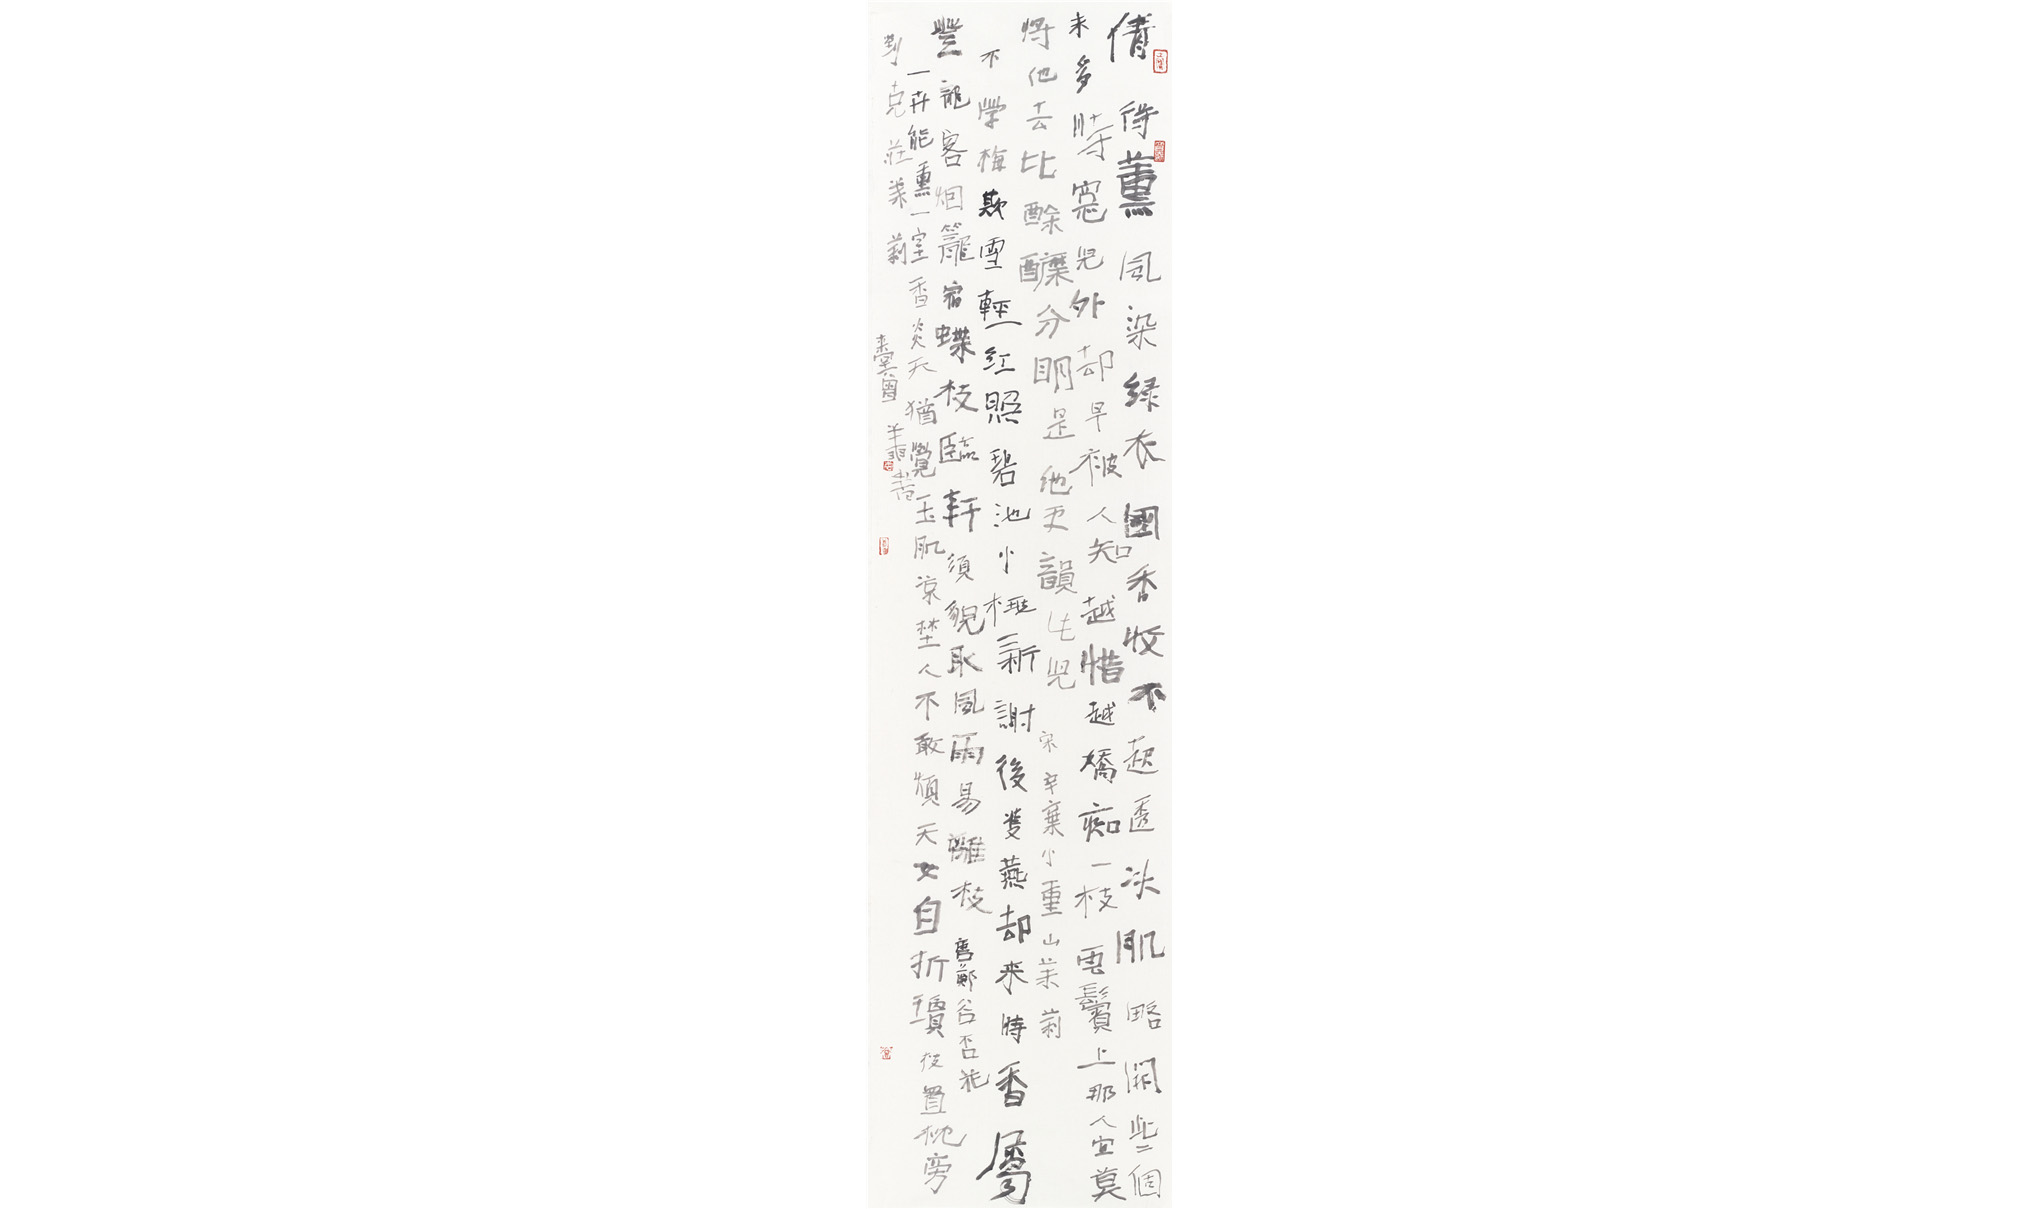 倩得薰風染綠衣國香收不起透冰肌略開些個
未多時窓兒外却早被人知越惜越嬌痴一枝雲鬢上那人宜莫
將他去比酴醾分明是他更韻些兒 宋辛棄小重山茉莉
不學梅欺雪輕紅照碧池小桃新謝後雙燕却來時香屬
登龍客烟籠宿蝶枝臨軒須貌取風雨易離枝 唐鄭谷杏花
一卉能熏一室香炎天猶覺玉肌涼埜人不敢煩天女自折瓊枝置枕旁
劉克莊茉莉
書